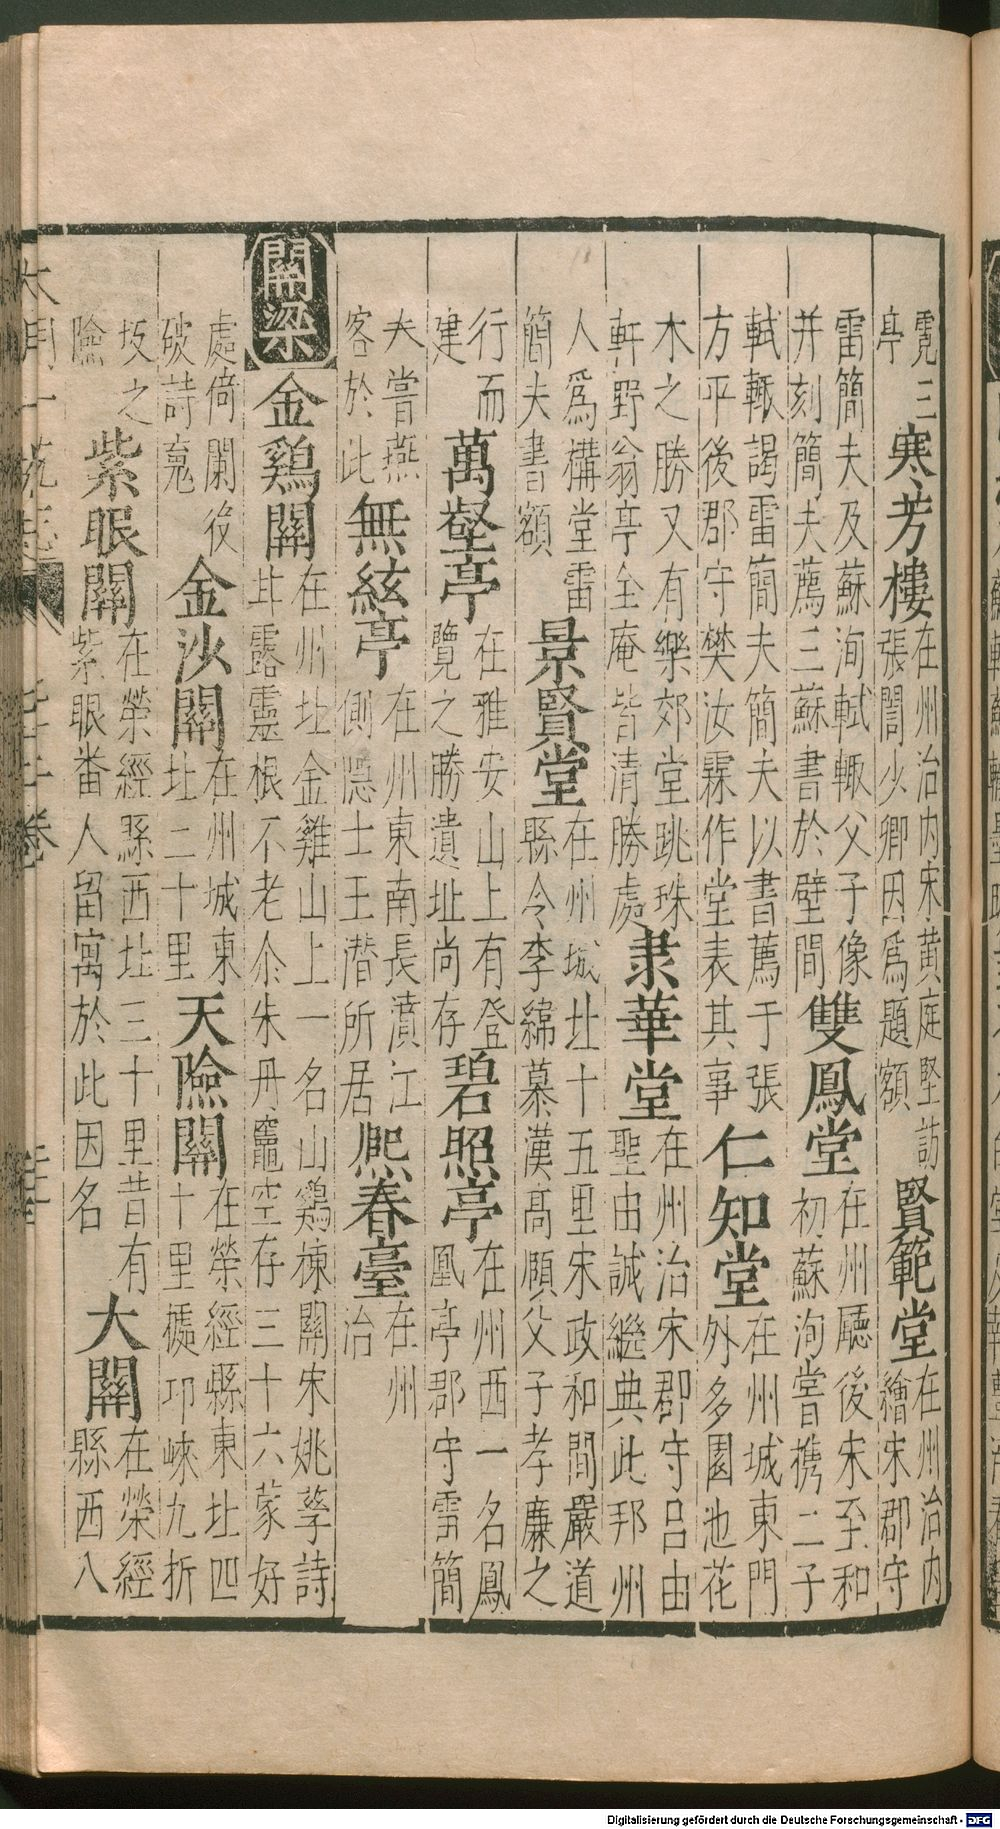 霓三亭 寒芳樓 在州治内宋黄庭堅訪張誾少卿因爲題額 賢範堂 在州治内繪宋郡守
雷簡夫及蘇洵軾轍父子像并刻簡夫薦三蘇書於壁間 雙鳳堂 在州廳後宋至和初蘇洵嘗携二子
軾轍謁雷簡夫簡夫以書薦于張方平後郡守樊汝霖作堂表其事 仁知堂 在州城東門外多園池花
木之勝又有樂郊堂跳珠軒野翁亭全庵皆清勝處 隶華堂 在州治宋郡守吕由聖由誠繼典此邦州
人爲構堂雷簡夫書額 景賢堂 在州城北十五里宋政和間嚴道縣令李綿慕漢高頤父子孝廉之
行而建 萬壑亭 在雅安山上有登覽之勝遺址尚存 碧照亭 在州西一名鳳凰亭郡守雷簡
夫嘗燕客於此 無絃亭 在州東南長濆江側隱士王潛所居 熈春臺 在州治
關梁 金鷄關 在州北金雞山上一名山鷄棟關宋姚孳詩井露靈根不老木朱丹竈空存三十六蒙好
處倚闌後破詩寬 金沙關 在州城東北二十里 天險關 在榮經縣東北四十里據邛崍九折
坂之險 紫眼關 在榮經縣西北三十里昔有紫眼番人留寓於此因名 大關 在榮經縣西八
大明一統志 七十二卷
Digitalisierung gefördert durch die Deutsche Forschungsgemeinschaft - DFG